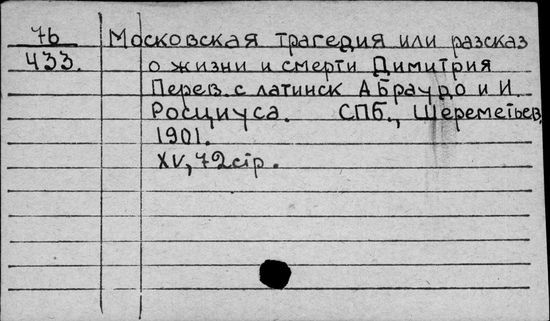 76 Московская трагедия или разсказ
433. о жизни и смерти Димитрия
Перев. с латинск А Браудо и И.
Росциуса. СПб., Шереметьев,
1901.
XV, 72 стр.